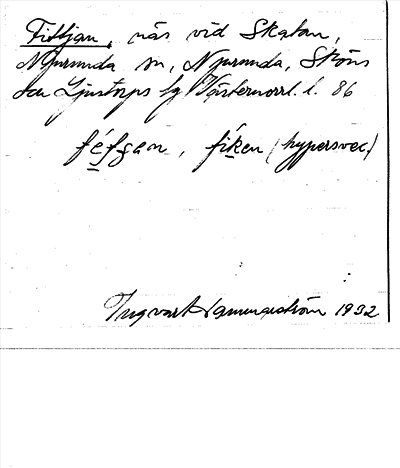 Fittjan, näs vid Skatan,
Njurunda sn, Njurunda, Sköns
och Ljustorps tg Västernorrl. l. 86
féfgan, fiken (hypersvec.)
Ingvart Hammarström 1932